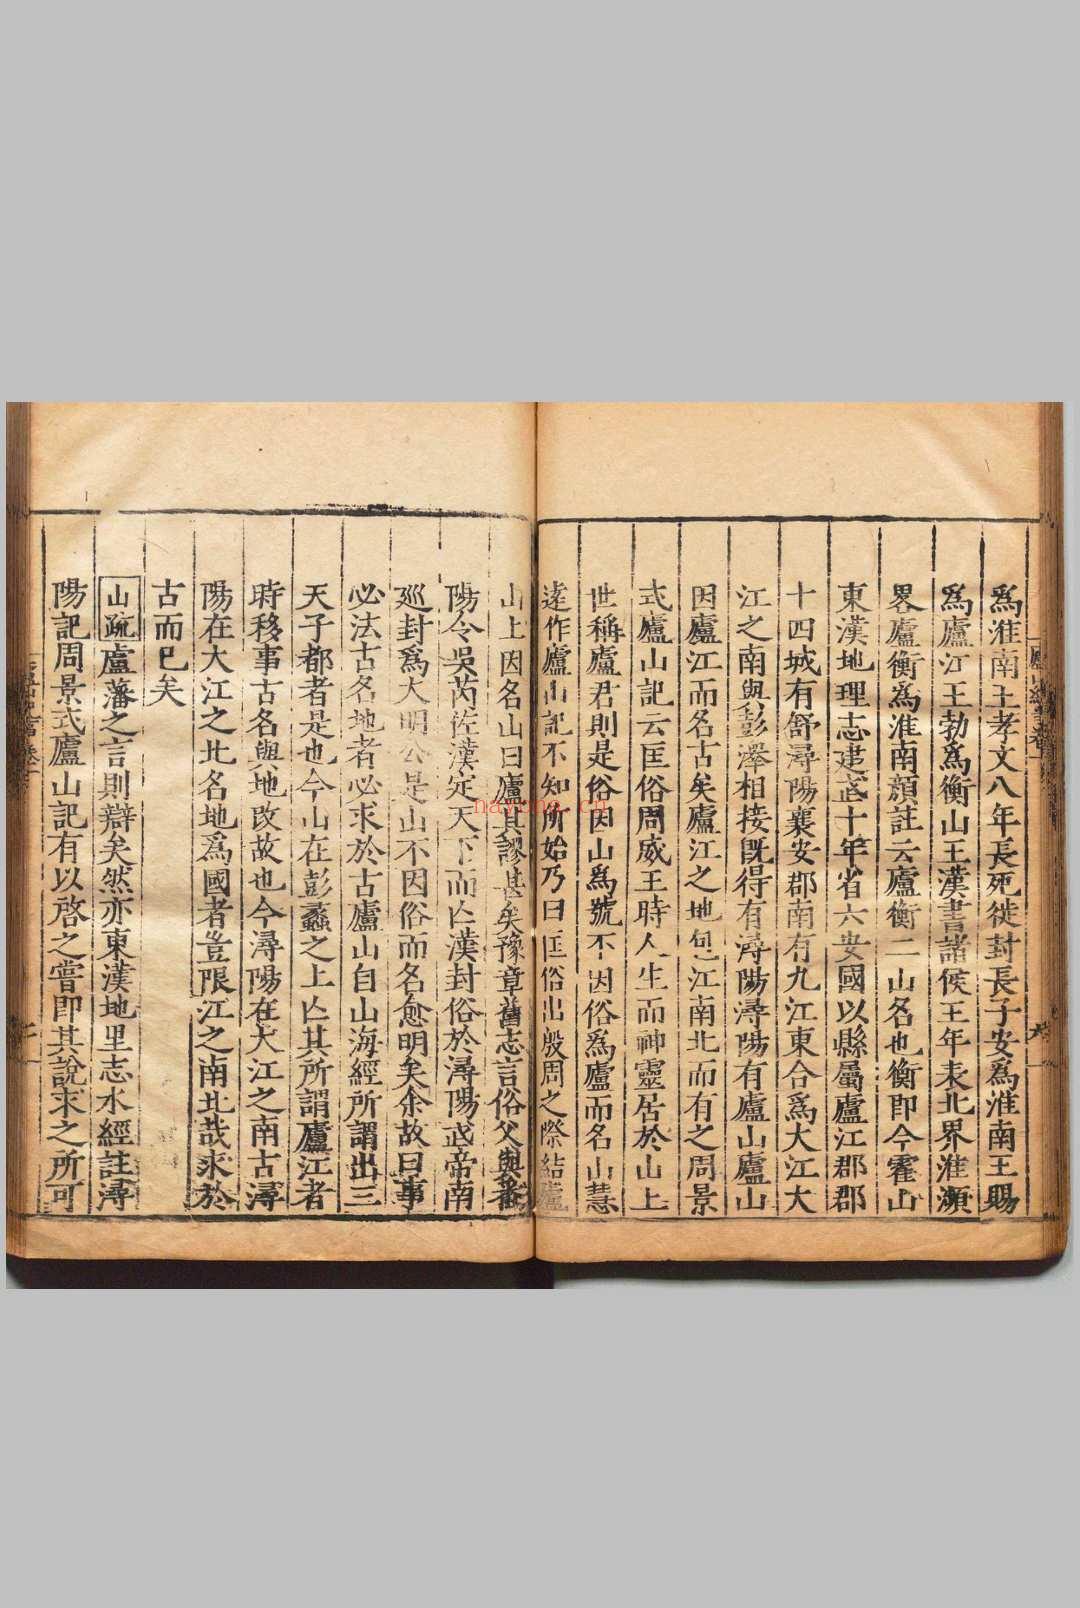 爲淮南王孝文八年長死徙封長子安爲淮南王賜
爲廬江王勃爲衡山王漢書諸侯王年表北界淮瀕
畧廬衡爲淮南顔註云廬衡二山名也衡即今霍山
東漢地理志建武十年省六安國以縣屬廬江郡郡
十四城有舒尋陽襄安郡南有九江東合爲大江大
江之南與彭澤相接既得有潯陽潯陽有廬山廬山
因廬江而名古矣廬江之地包江南北而有之周景
式廬山記云匡俗周威王時人生而神靈居於山上
世稱廬君則是俗因山爲號不因俗爲廬而名山慧
遠作廬山記不知所始乃曰匡俗出殷周之際結廬
山上因名山曰廬其謬甚矣豫章舊志言俗父與番
陽令吳芮佐漢定天下而亾漢封俗於潯陽武帝南
廵封爲大明公是山不因俗而名愈明矣余故曰事
必法古名地者必求於古廬山自山海經所謂出三
天子都者是也今山在彭蠡之上亾其所謂廬江者
時移事古名與地改故也今潯陽在大江之南古潯
陽在大江之北名地爲國者豈限江之南北哉求於
古而已矣
山疏盧藩之言則辯矣然亦東漢地里志水經註潯
陽記周景式廬山記有以啓之嘗即其說求之所可
nayona.cn